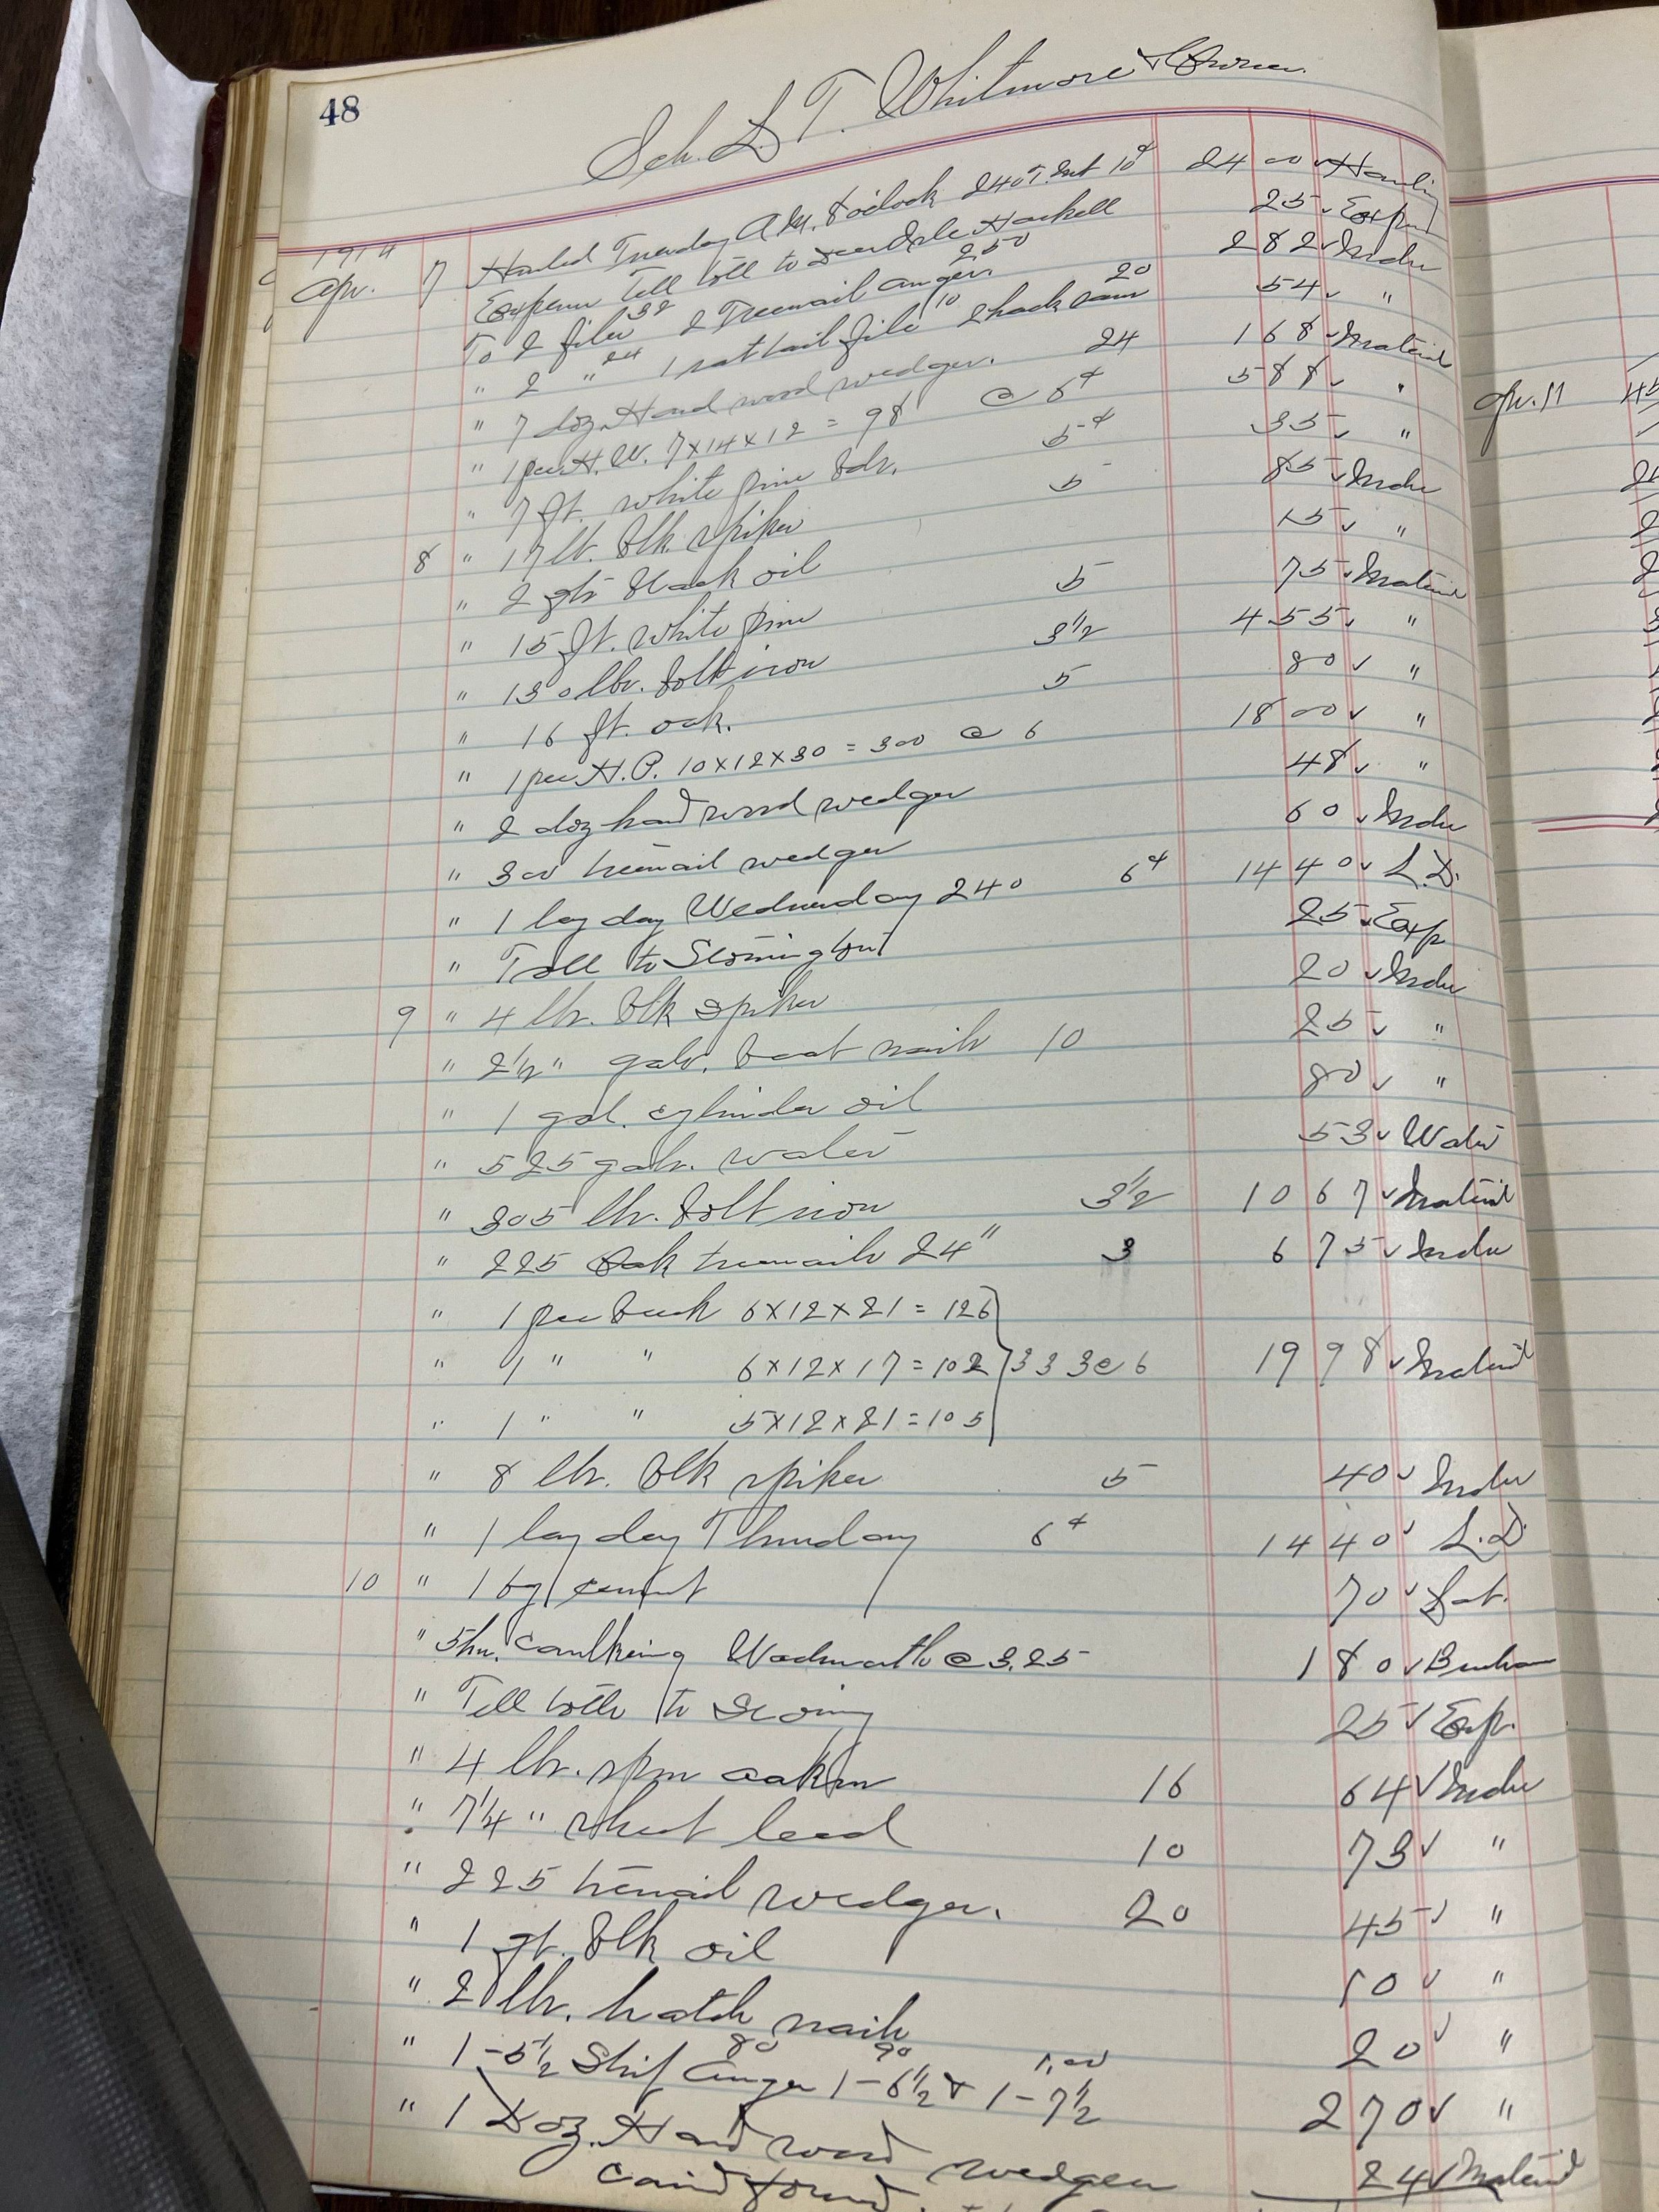 48
Sch. L. T. Whitmore & Owners.
1914
Apr. 7 Hauled Tuesday A.M. 8 oclock 240 T. net 10¢ 24 00 ✓ Hauling
Expense Tell toll to Deer Isle Haskell 25 ✓ Exp
To 2 files 32 2 Treenail augers 250 2 82 ✓ Mdse
" 2 " 24 1 rat tail file 10 2 hack saws 20 54 ✓ "
" 7 doz. Hard wood wedges. 24 1 68 ✓ Material
" 1 pce H. W. 7x14x12 = 98 @ 6¢ 5 88 ✓ "
" 7 ft. white pine bds. 5¢ 35 ✓ "
8 " 17 lb. blk. spikes 5 85 ✓ Mdse
" 2 qts black oil 15 ✓ "
" 15 ft. white pine 5 75 ✓ Material
" 130 lbs. bolt iron 3½ 4 55 ✓ "
" 16 ft. oak. 5 80 ✓ "
" 1 pce H.P. 10x12x30 = 300 @ 6 18 00 ✓ "
" 2 doz hard wood wedges 48 ✓ "
" 300 treenail wedges 60 ✓ Mdse
" 1 lay day Wednesday 240 6¢ 14 40 ✓ L.D.
" Toll to Stonington 25 ✓ Exp
9 " 4 lbs. blk spikes 20 ✓ Mdse
" 2½ " galv. boat nails 10 25 ✓ "
" 1 gal. cylinder oil 80 ✓ "
" 525 gals. water 53 ✓ Water
" 305 lbs. bolt iron 3½ 10 67 ✓ Material
" 225 Oak treenails 24" 3 6 75 ✓ Mdse
" 1 pce beech 6x12x21 = 126
" 1 " " 6x12x17 = 102 } 333 @ 6 19 98 ✓ Material
" 1 " " 5x12x21 = 105
" 8 lbs. blk spikes 5 40 ✓ Mdse
" 1 lay day Thursday 6¢ 14 40 ✓ L.D.
10 " 1 bg cement 70 ✓
" 5 hrs. caulking Wadsworth @ 3.25 1 80 ✓
" Tell tolls to Stoning 25 ✓ Exp.
" 4 lbs. spun oakum 16 64 ✓ Mdse
" 7¼ " sheet lead 10 73 ✓ "
" 225 treenail wedges. 20 45 ✓ "
" 1 qt. blk oil 10 ✓ "
" 2 lbs. hatch nails 20 ✓ "
" 1-5½ Ship Auger 80 1-6½ 90 & 1-7½ 1.00 2 70 ✓ "
" 1 Doz. Hard wood wedges 24 ✓ Material
Carried forward.
Apr. 11